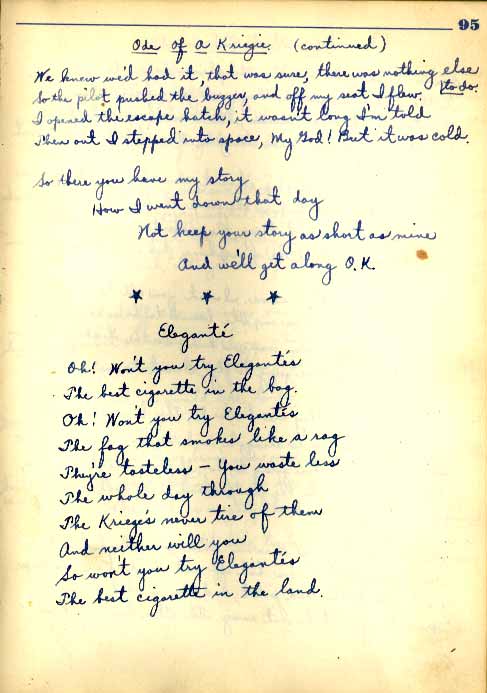 95
Ode of a Kriegie. (continued)
We knew we'd had it, that was sure, there was nothing else to do.
So the pilot pushed the buzzer, and off my seat I flew.
I opened the escape hatch, it wasn't long I'm told
Then out I stepped into space, My God! But it was cold.
So there you have my story
How I went down that day
Not keep your story as short as mine
And we'll get along O.K.
Eleganté
Oh! Won't you try Elegantés
The best cigarette in the bag.
Oh! Won't you try Elegantés
The fag that smokes like a rag
They're tasteless – You waste less
The whole day through
The Kriege's never tire of them
And neither will you
So won't you try Elegantés
The best cigarette in the land.